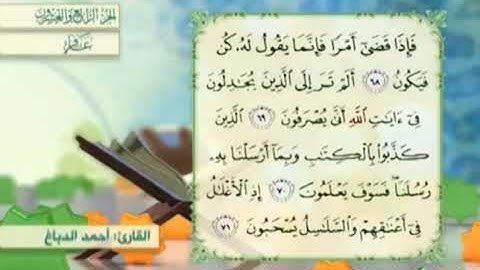 الجزء الرابع والعشرون
سورة غافر
فَإِذَا قَضَىٰٓ أَمْرًا فَإِنَّمَا يَقُولُ لَهُۥ كُن
فَيَكُونُ ٦٨ أَلَمْ تَرَ إِلَى ٱلَّذِينَ يُجَٰدِلُونَ
فِىٓ ءَايَٰتِ ٱللَّهِ أَنَّىٰ يُصْرَفُونَ ٦٩ ٱلَّذِينَ
كَذَّبُوا۟ بِٱلْكِتَٰبِ وَبِمَآ أَرْسَلْنَا بِهِۦ
رُسُلَنَا ۖ فَسَوْفَ يَعْلَمُونَ ٧٠ إِذِ ٱلْأَغْلَٰلُ
فِىٓ أَعْنَٰقِهِمْ وَٱلسَّلَٰسِلُ يُسْحَبُونَ ٧١
القارئ: أحمد الدباغ